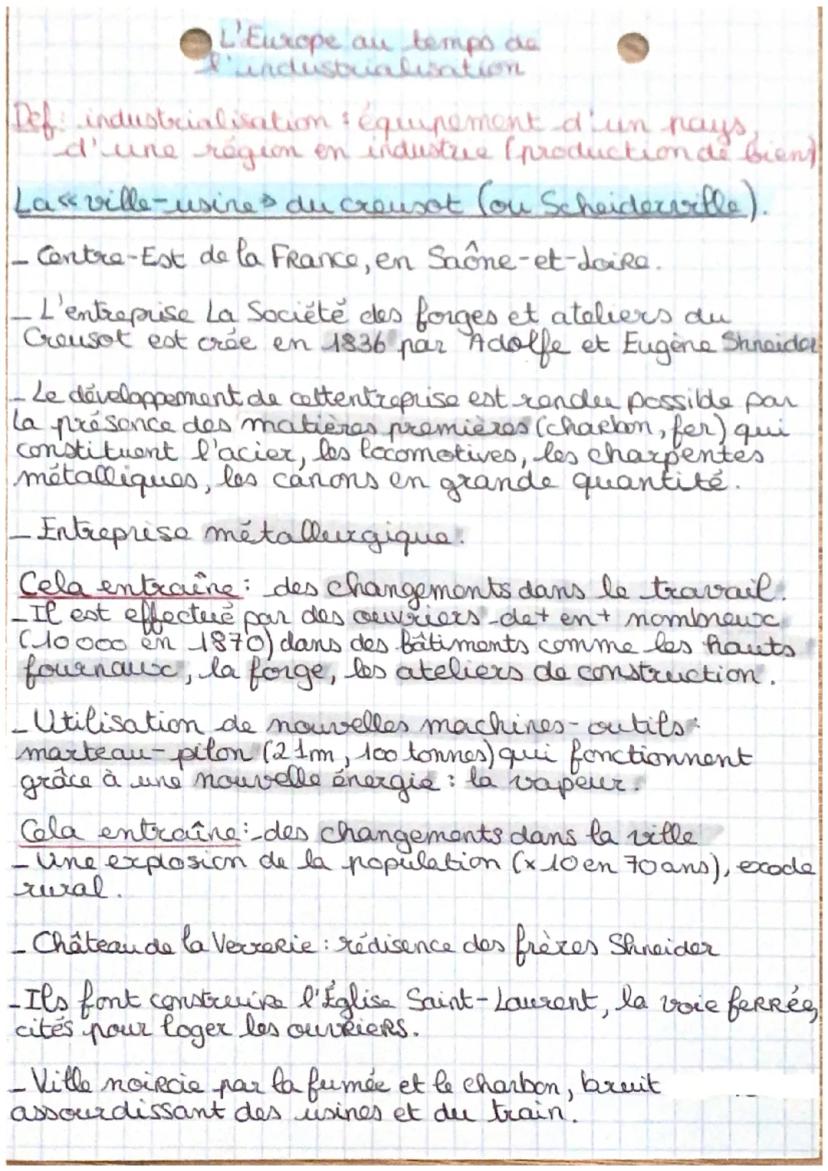 L'Europe au temps de
l'industrialisation
Def: industrialisation : équipement d'un pays,
d'une région en industrie (production de bien)
La « ville-usine » du creusot (ou Scheiderville).
- Centre-Est de la France, en Saône-et-Loire.
- L'entreprise La Société des forges et ateliers du
Creusot est crée en 1836 par Adolfe et Eugène Shneider
- Le développement de cettentreprise est rendu possible par
la présence des matières premières (charbon, fer) qui
constituent l'acier, les locomotives, les charpentes
métalliques, les canons en grande quantité.
- Entreprise métallurgique.
Cela entraîne : des changements dans le travail.
- Il est effectué par des ouvriers de + en + nombreux
(10 000 en 1870) dans des bâtiments comme les hauts
fournaux, la forge, les ateliers de construction.
- Utilisation de nouvelles machines-outils :
marteau-pilon (21m, 100 tonnes) qui fonctionnent
grâce à une nouvelle énergie : la vapeur.
Cela entraîne : des changements dans la ville
- Une explosion de la population (x 10 en 70 ans), exode
rural.
- Château de la Verrerie : rédisence des frères Shneider
- Ils font construire l'Église Saint-Laurent, la voie ferrée,
cités pour loger les ouvriers.
- Ville noircie par la fumée et le charbon, bruit
assourdissant des usines et du train.